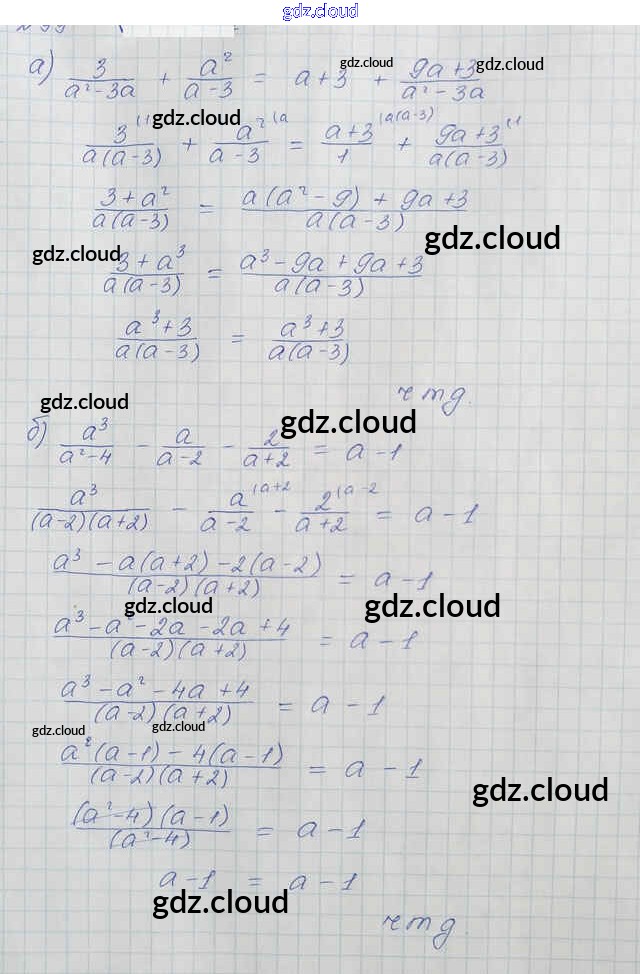 gdz.cloud
а) 3/(a² - 3a) + a²/(a - 3) = a + 3 + (9a + 3)/(a² - 3a)
gdz.cloud gdz.cloud
3⁽¹/(a(a - 3)) + a²⁽ᵃ/(a - 3) = (a + 3)⁽ᵃ⁽ᵃ⁻³⁾/1 + (9a + 3)⁽¹/(a(a - 3))
gdz.cloud
(3 + a²)/(a(a - 3)) = (a(a² - 9) + 9a + 3)/(a(a - 3))
gdz.cloud
gdz.cloud
(3 + a³)/(a(a - 3)) = (a³ - 9a + 9a + 3)/(a(a - 3))
(a³ + 3)/(a(a - 3)) = (a³ + 3)/(a(a - 3))
чтд.
gdz.cloud
gdz.cloud
б) a³/(a² - 4) - a/(a - 2) - 2/(a + 2) = a - 1
a³/((a - 2)(a + 2)) - a⁽ᵃ⁺²/(a - 2) - 2⁽ᵃ⁻²/(a + 2) = a - 1
gdz.cloud
(a³ - a(a + 2) - 2(a - 2))/((a - 2)(a + 2)) = a - 1
gdz.cloud gdz.cloud
(a³ - a² - 2a - 2a + 4)/((a - 2)(a + 2)) = a - 1
(a³ - a² - 4a + 4)/((a - 2)(a + 2)) = a - 1
gdz.cloud gdz.cloud
(a²(a - 1) - 4(a - 1))/((a - 2)(a + 2)) = a - 1
gdz.cloud
((a² - 4)(a - 1))/(a² - 4) = a - 1
a - 1 = a - 1
gdz.cloud
чтд